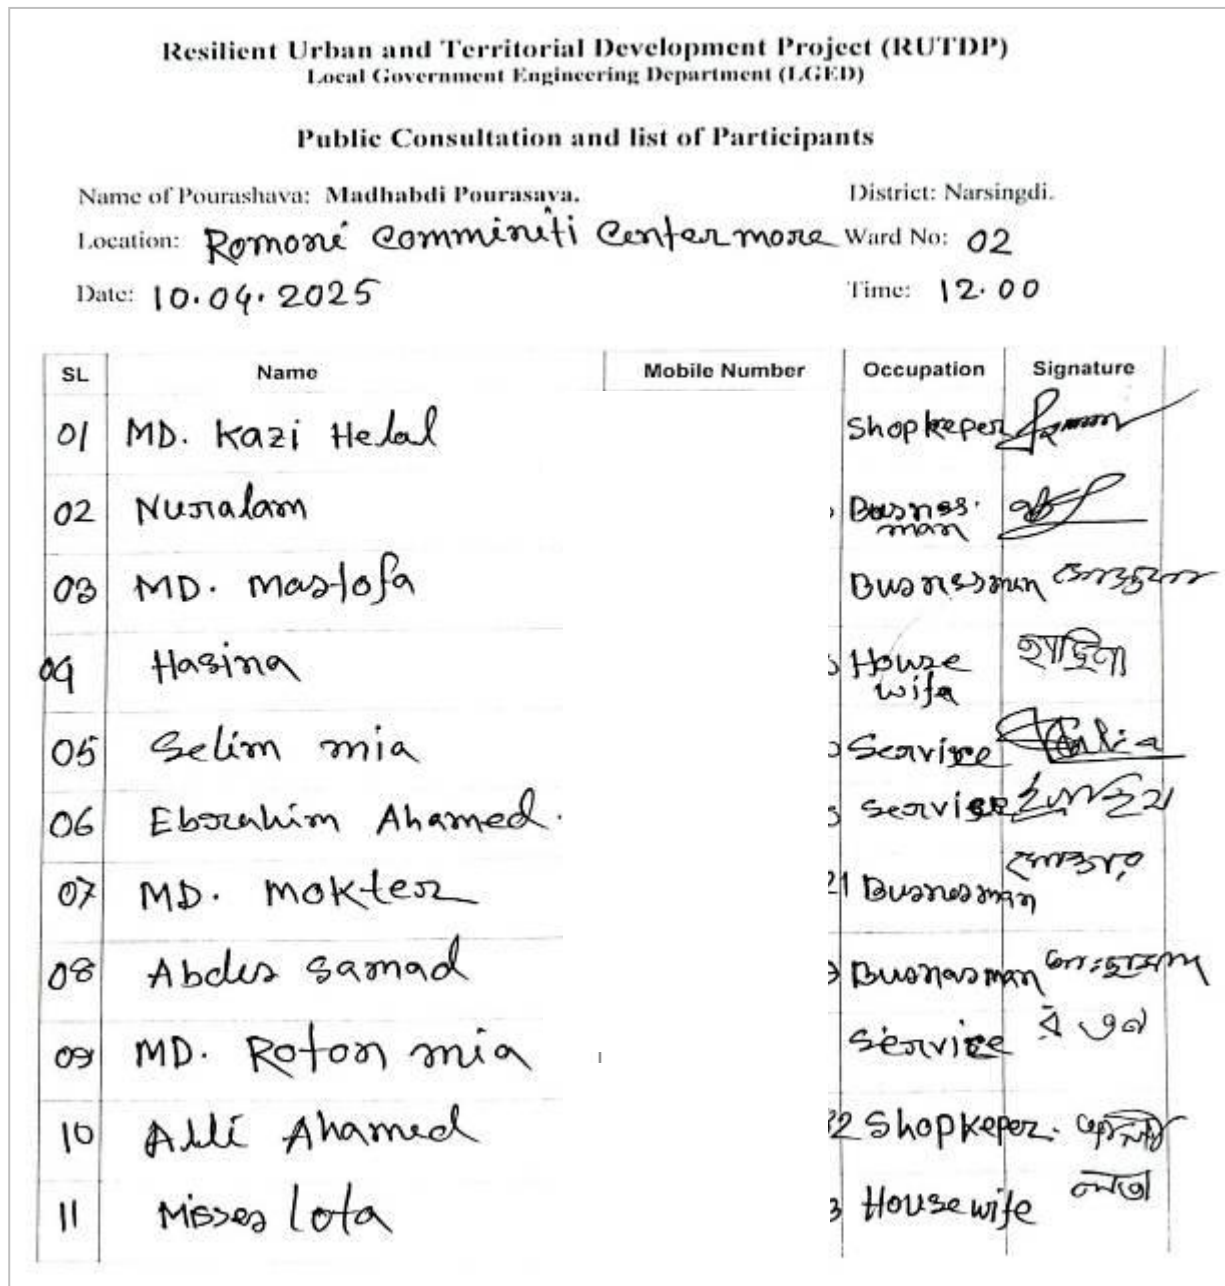 Resilient Urban and Territorial Development Project (RUTDP)
Local Government Engineering Department (LGED)
Public Consultation and list of Participants
Name of Pourashava: Madhabdi Pourasava. District: Narsingdi.
Location: Romoni Comminiti Center more Ward No: 02
Date: 10.04.2025 Time: 12.00
SL Name Mobile Number Occupation Signature
01 MD. Kazi Helal Shopkeper
02 Nuralam Busness.
man
03 MD. Mastofa Busnessman
04 Hasina House হাছিনা
wife
05 Selim mia Service
06 Ebrahim Ahamed. Service
07 MD. Mokter 21 Busnesman
08 Abdus Samad Busnasman
09 MD. Roton mia Service রতন
10 Alli Ahamed 2 Shopkeper.
11 Misses lota 3 House wife লতা